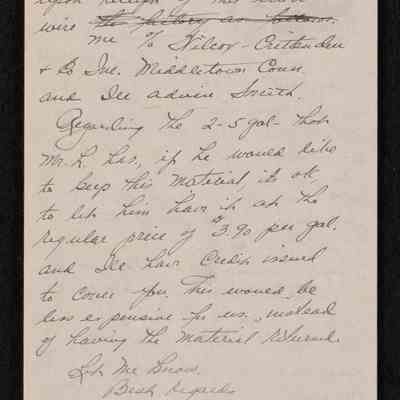 upon receipt of this letter
wire the factory as follows.
me % Wilcox-Crittenden
& Co Inc. Middletown Conn
and I'le advise Smith.
Regarding the 2-5 gal- that
Mr. L. has, if he would like
to keep this material, its ok
to let him have it at the
regular price of $3.90 per gal.
and I'le have Credit issued
to cover you. This would be
less expensive for us, instead
of having the material returned.
Let me know.
Best Regards